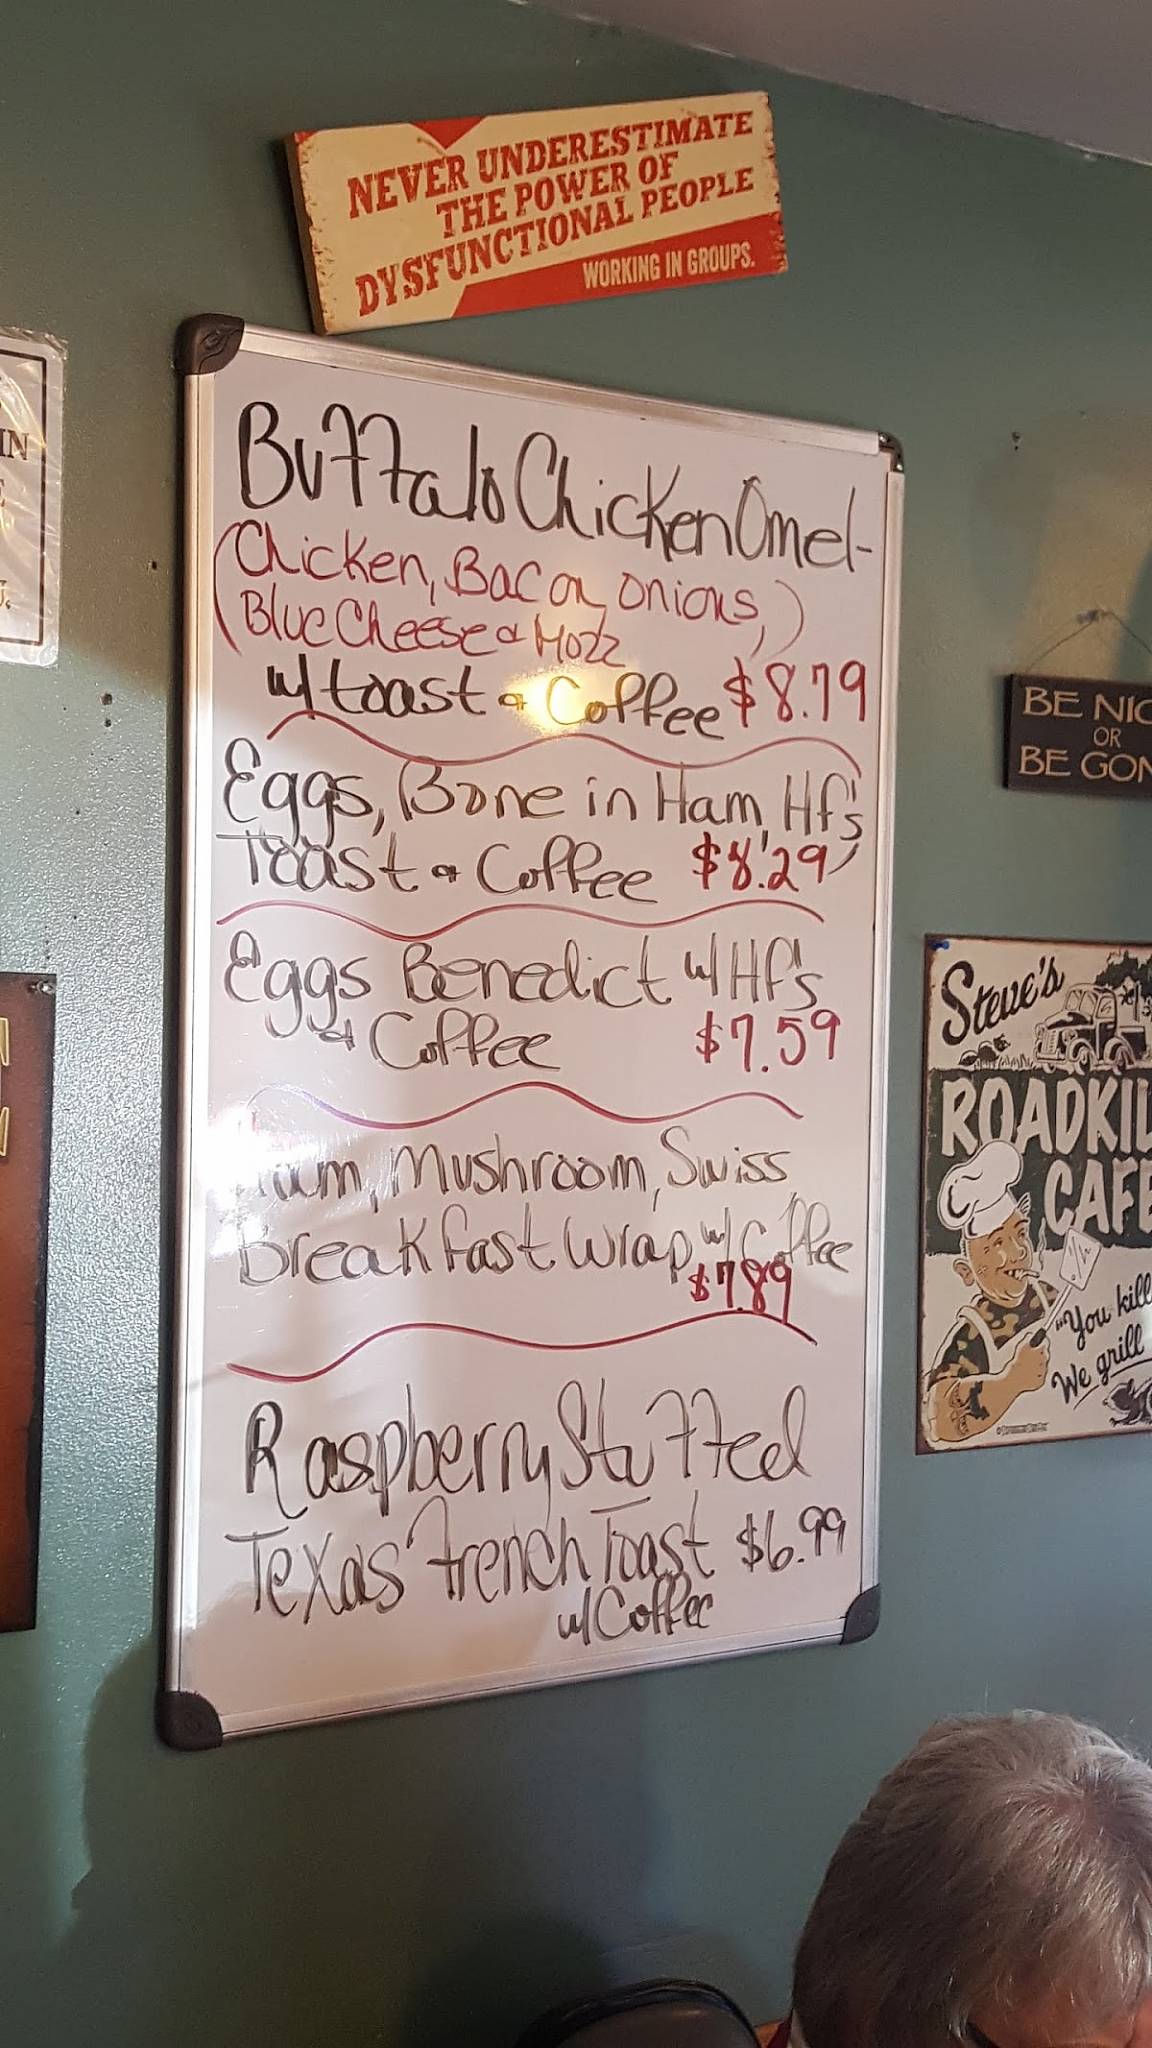 NEVER UNDERESTIMATE
THE POWER OF
DYSFUNCTIONAL PEOPLE
WORKING IN GROUPS.
Buffalo Chicken Omel-
(Chicken, Bacon, onions,)
Blue Cheese & Mozz
w/ toast & Coffee $8.79
Eggs, Bone in Ham, Hf's,
Toast & Coffee $8.29
Eggs Benedict w/ Hf's
& Coffee $7.59
Ham, Mushroom, Swiss
Breakfast Wrap w/ Coffee
$7.89
Raspberry Stuffed
Texas French Toast $6.99
w/ Coffee
IN
BE NIC
OR
BE GON
Steve's
ROADKIL
CAFE
"You kill
We grill